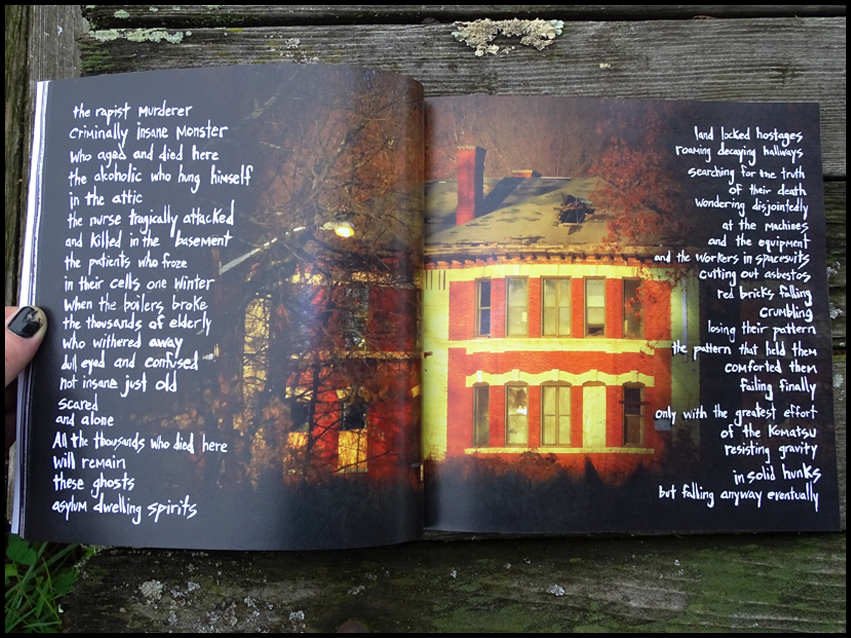 the rapist murderer
criminally insane monster
who aged and died here
the alcoholic who hung himself
in the attic
the nurse tragically attacked
and killed in the basement
the patients who froze
in their cells one winter
when the boilers broke
the thousands of elderly
who withered away
dull eyed and confused
not insane just old
scared
and alone
All the thousands who died here
will remain
these ghosts
asylum dwelling spirits
land locked hostages
roaming decaying hallways
searching for the truth
of their death
wondering disjointedly
at the machines
and the equipment
and the workers in spacesuits
cutting out asbestos
red bricks falling
crumbling
losing their pattern
the pattern that held them
comforted them
failing finally
only with the greatest effort
of the Komatsu
resisting gravity
in solid hunks
but falling anyway eventually